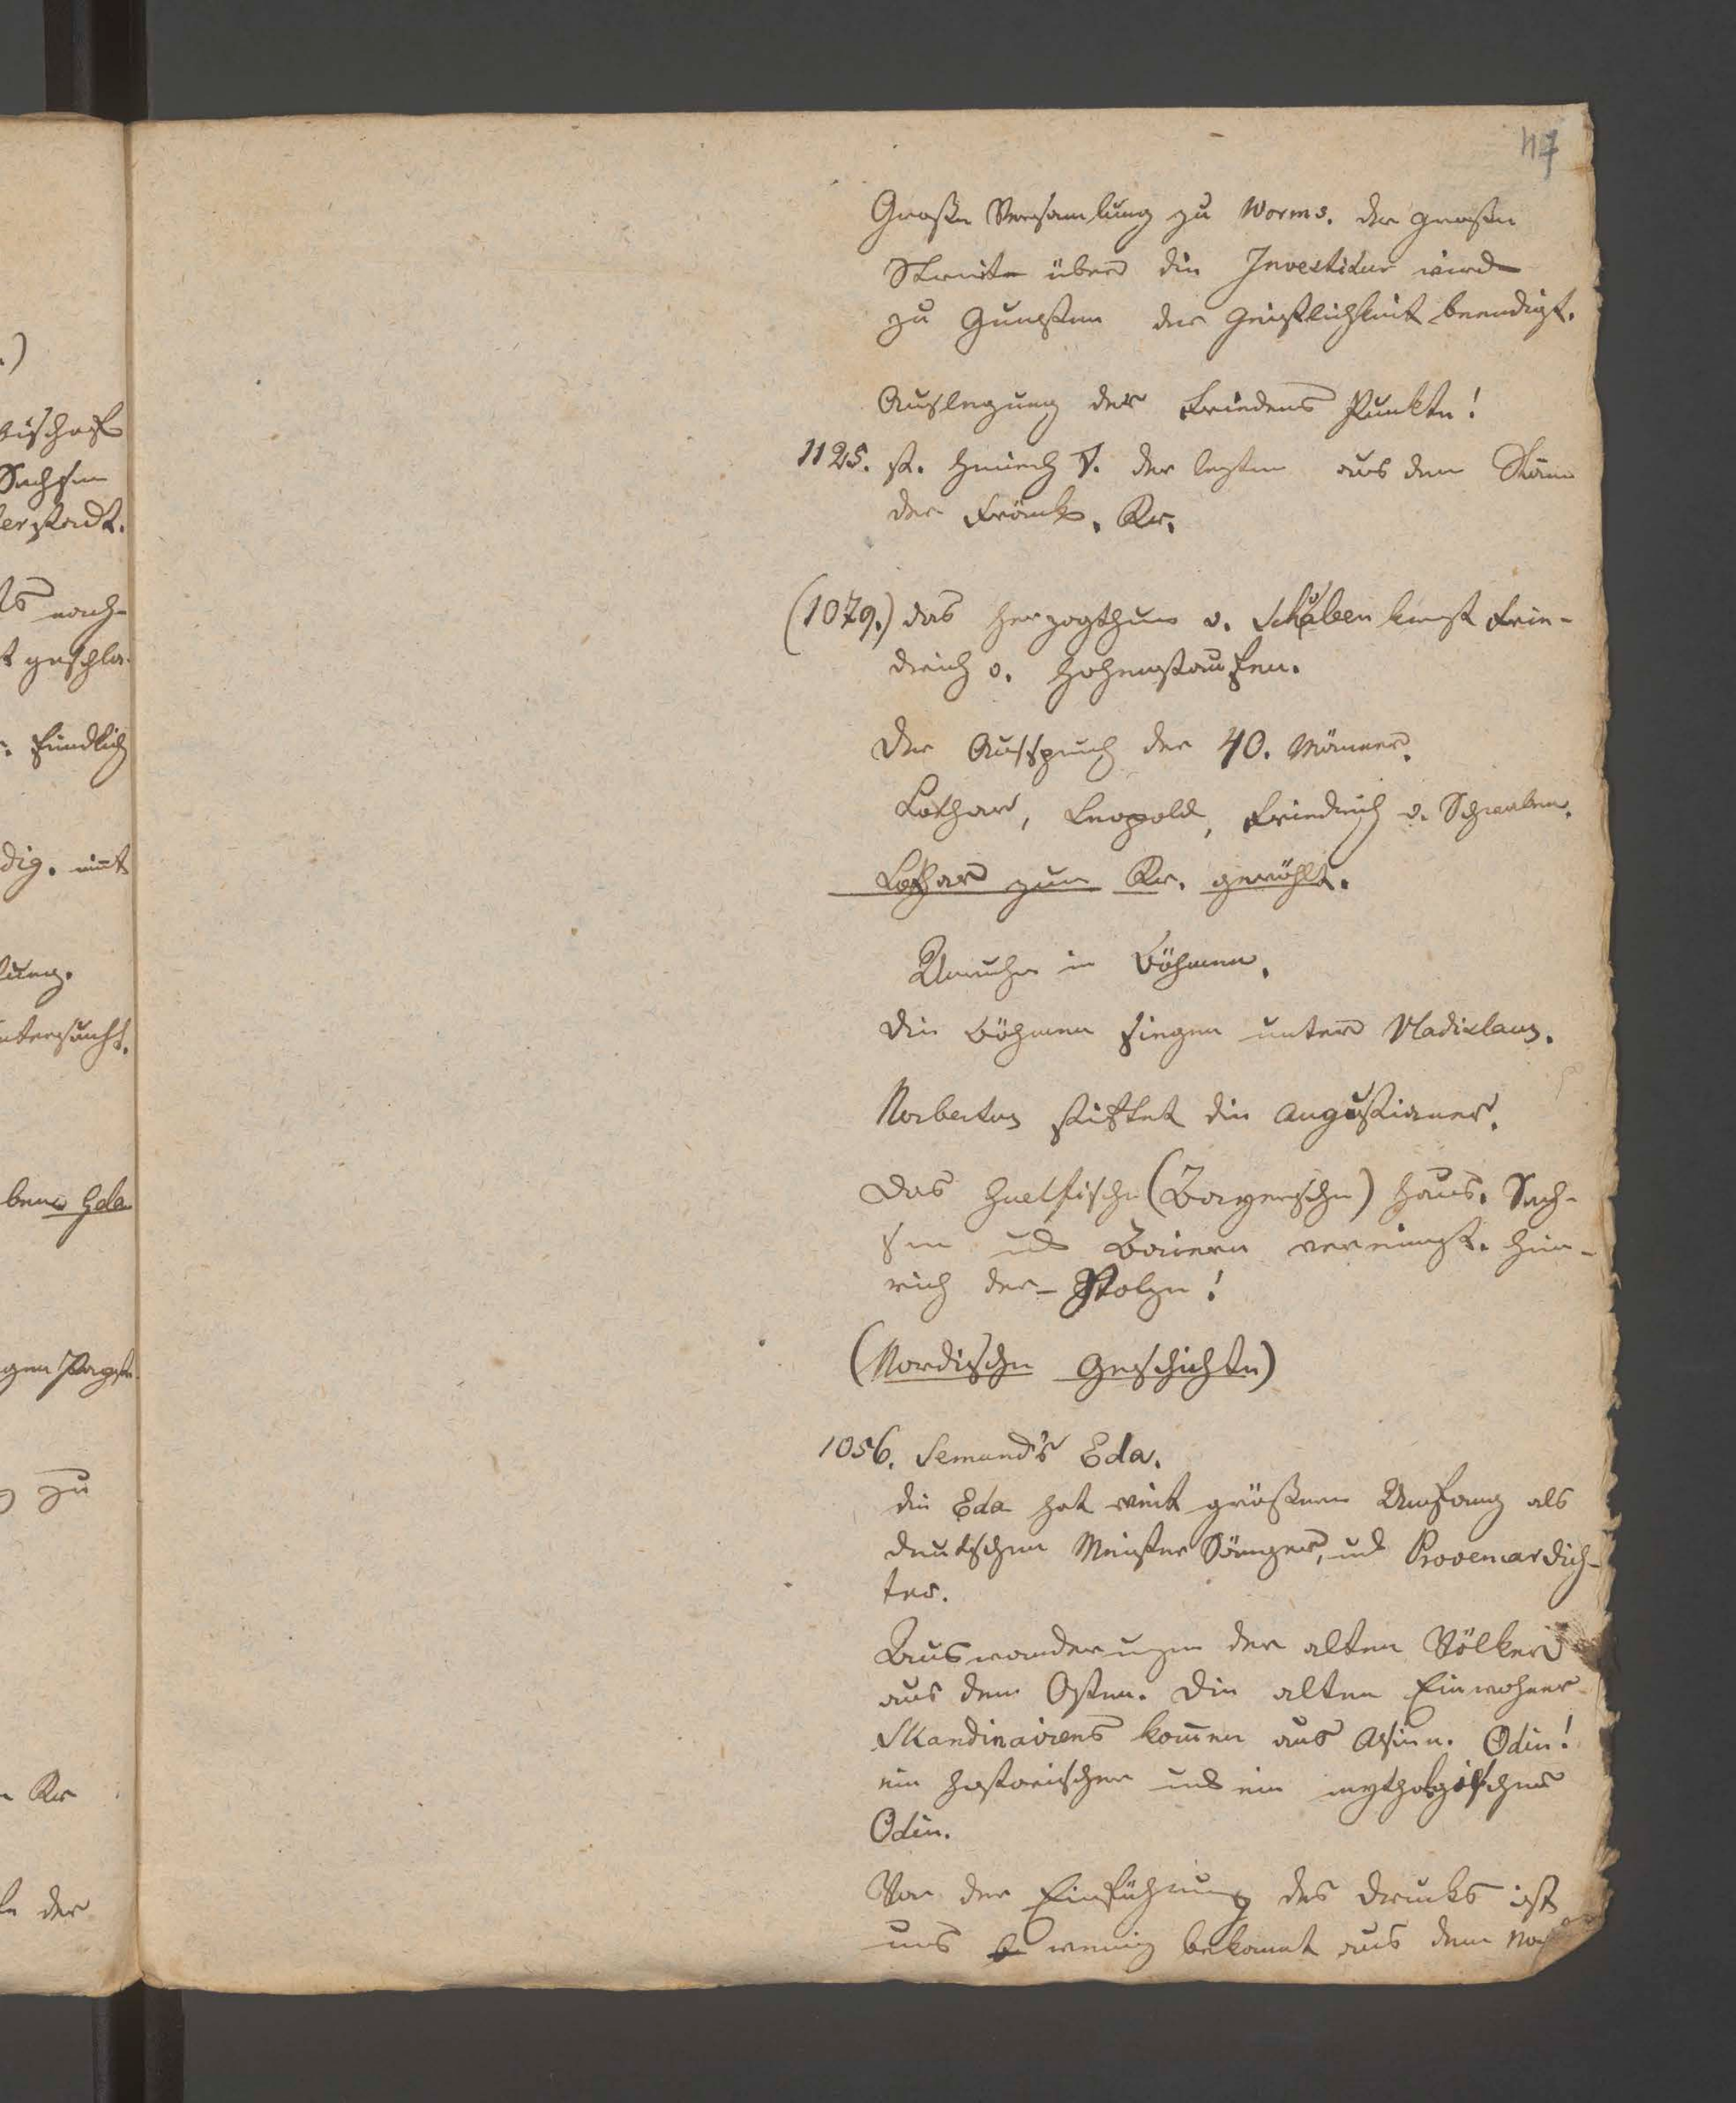 47
Große Versamlung zu Worms. der große
Streite über die Investidur wird
zu Gunsten der Geistlichkeit beendigt.
Auslegung der Friedens Punkte!
1125. st. Heinrich V. der lezte aus dem Stam
der Fränk. Kr.
(1079.) das Herzogthum v. Schwaben kauft Frie-
drich v. Hohenstaufen.
Der Ausspruch der 40. Männer.
Lothar, Leopold, Friedrich v. Schwaben.
Lothar zum Kr. gewählt.
Unruhe in Böhmen.
die Böhmen siegen unter Vladislaus.
Norbertus stiftet die Augustianer.
Das Guelfische (Bayersche) Haus. Sach-
sen und Baiern vereinigt. Hein-
rich der Stolze!
(Nordische Geschichte)
1056. Semund's Eda.
die Eda hat weit größern Umfang als
deutschen Meister Sänger, und Provencardich-
ter.
Auswanderungen der alten Völker
aus dem Osten. Die alten Einwohner
Skandinaviens komen aus Asien. Odin!
ein historischer und ein mythologischer
Odin.
Von der Einführung des Drucks ist
uns wenig bekannt aus dem
bischof
Sachsen
erstadt.
nach-
t geschla-
feindlich
dig. mit
ung.
untersucht.
ber Gda
gen Papst
zu
Kr
der